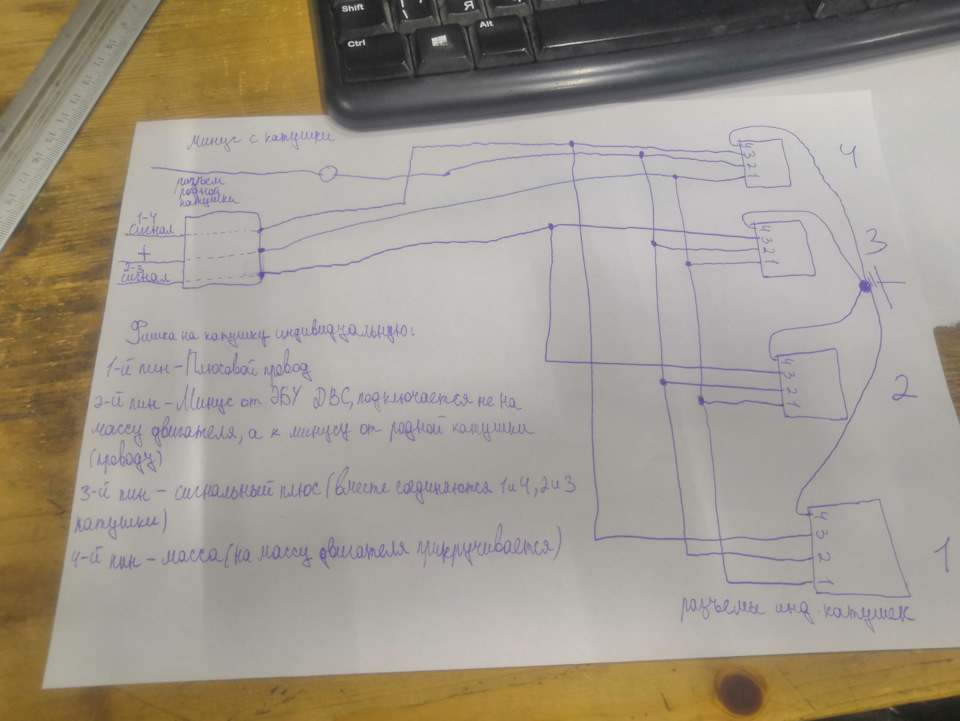 Shift
Я
Ctrl
Alt
минус с катушки
разъем
родной
катушки
1-4
сигнал
+
2-3
сигнал
4 3 2 1
4
4 3 2 1
3
4 3 2 1
2
4 3 2 1
1
Фишка на катушку индивидуальную:
1-й пин - Плюсовой провод
2-й пин - Минус от ЭБУ ДВС, подключается не на
массу двигателя, а к минусу от родной катушки
(проводу)
3-й пин - сигнальный плюс (вместе соединаются 1 и 4, 2 и 3
катушки)
4-й пин - масса (на массу двигателя прикручивается)
разъемы инд. катушек